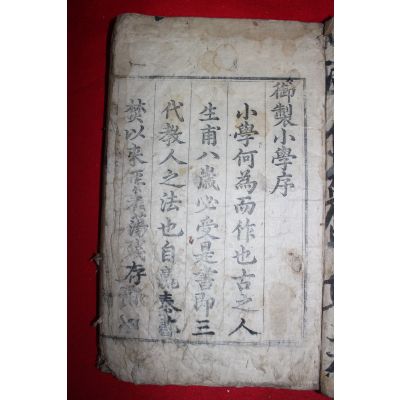 御製小學序
小學何為而作也古之人
生甫八歲必受是書即三
代教人之法也自嬴秦
焚以來蕩殘存